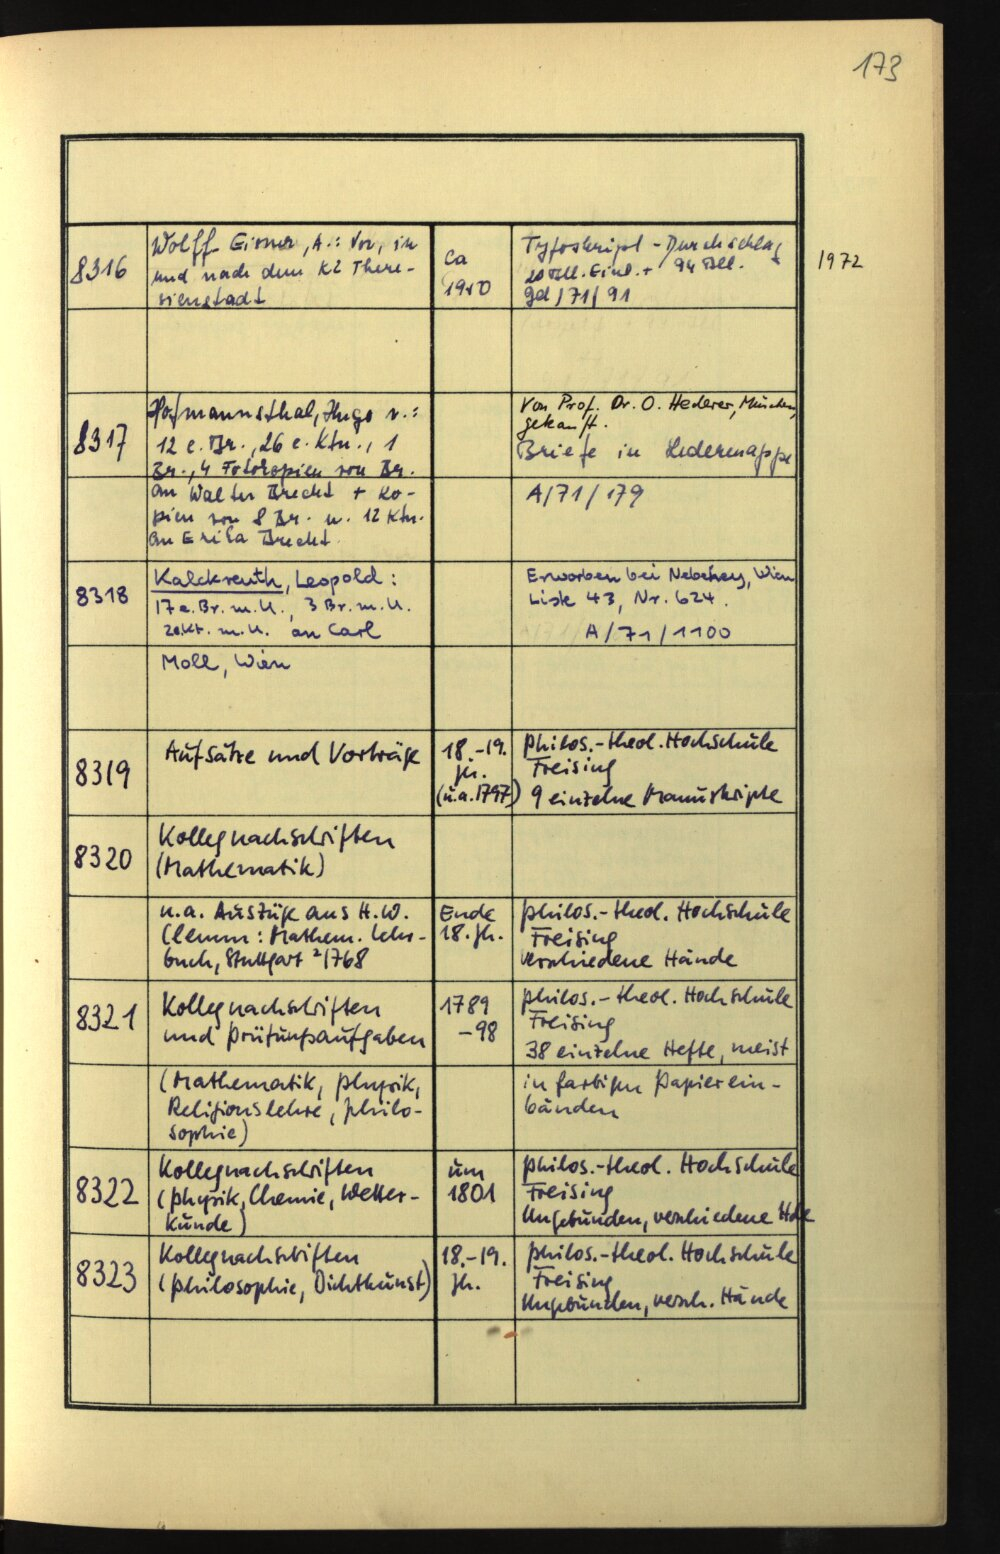 173
8316
Wolff-Eisner, A.: Vor, in
und nach dem KZ There-
sienstadt
Ca
Typoskript-Durchschlag
Bll. Einl. + 94 Bll.
gel/71/91
1972
8317
Hofmannsthal, Hugo v.:
12 e. Br., 26 e. Ktn., 1
Br., 4 Fotokopien von Br.
an Walter Brecht + Ko-
pien von 8 Br. u. 12 Ktn.
an Erika Brecht.
Von Prof. Dr. O. Hederer, München,
gekauft.
Briefe in Ledermappe
A/71/179
8318
Kalckreuth, Leopold:
17 e. Br. m. U., 3 Br. m. U.
2 e. Kt. m. U. an Carl
Moll, Wien
Erworben bei Nebehay, Wien
Liste 43, Nr. 624.
A/71/1100
8319
Aufsätze und Vorträge
18.-19.
Jh.
(u.a. 1797)
Philos.-theol. Hochschule
Freising
9 einzelne Manuskripte
8320
Kollegnachschriften
(Mathematik)
u.a. Auszüge aus H.W.
Clemm: Mathem. Lehr-
buch, Stuttgart ²1768
Ende
18. Jh.
Philos.-theol. Hochschule
Freising
verschiedene Hände
8321
Kollegnachschriften
und Prüfungsaufgaben
(Mathematik, Physik,
Religionslehre, Philo-
sophie)
1789
-98
Philos.-theol. Hochschule
Freising
38 einzelne Hefte, meist
in farbigen Papierein-
bänden
8322
Kollegnachschriften
(Physik, Chemie, Wetter-
kunde)
um
1801
Philos.-theol. Hochschule
Freising
Ungebunden, verschiedene Hde
8323
Kollegnachschriften
(Philosophie, Dichtkunst)
18.-19.
Jh.
Philos.-theol. Hochschule
Freising
Ungebunden, versch. Hände